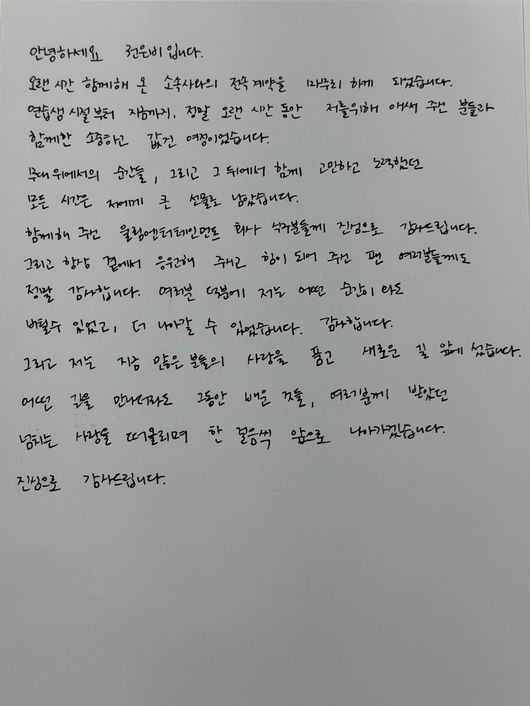 안녕하세요 권은비입니다.
오랜 시간 함께해 온 소속사와의 전속계약을 마무리 하게 되었습니다.
연습생 시절부터 지금까지, 정말 오랜 시간 동안 저를위해 애써 주신 분들과
함께한 소중하고 값진 여정이었습니다.
무대 위에서의 순간들, 그리고 그 뒤에서 함께 고민하고 노력했던
모든 시간은 저에게 큰 선물로 남았습니다.
함께해 주신 울림엔터테인먼트 회사 식구분들께 진심으로 감사드립니다.
그리고 항상 곁에서 응원해 주시고 힘이 되어 주신 팬 여러분들께도
정말 감사합니다. 여러분 덕분에 저는 어떤 순간이라도
버틸수 있었고, 더 나아갈 수 있었습니다. 감사합니다.
그리고 저는 지금 많은 분들의 사랑을 품고 새로운 길 앞에 섰습니다.
어떤 길을 만나더라도 그동안 배운 것들, 여러분께 받았던
넘치는 사랑을 떠올리며 한 걸음씩 앞으로 나아가겠습니다.
진심으로 감사드립니다.